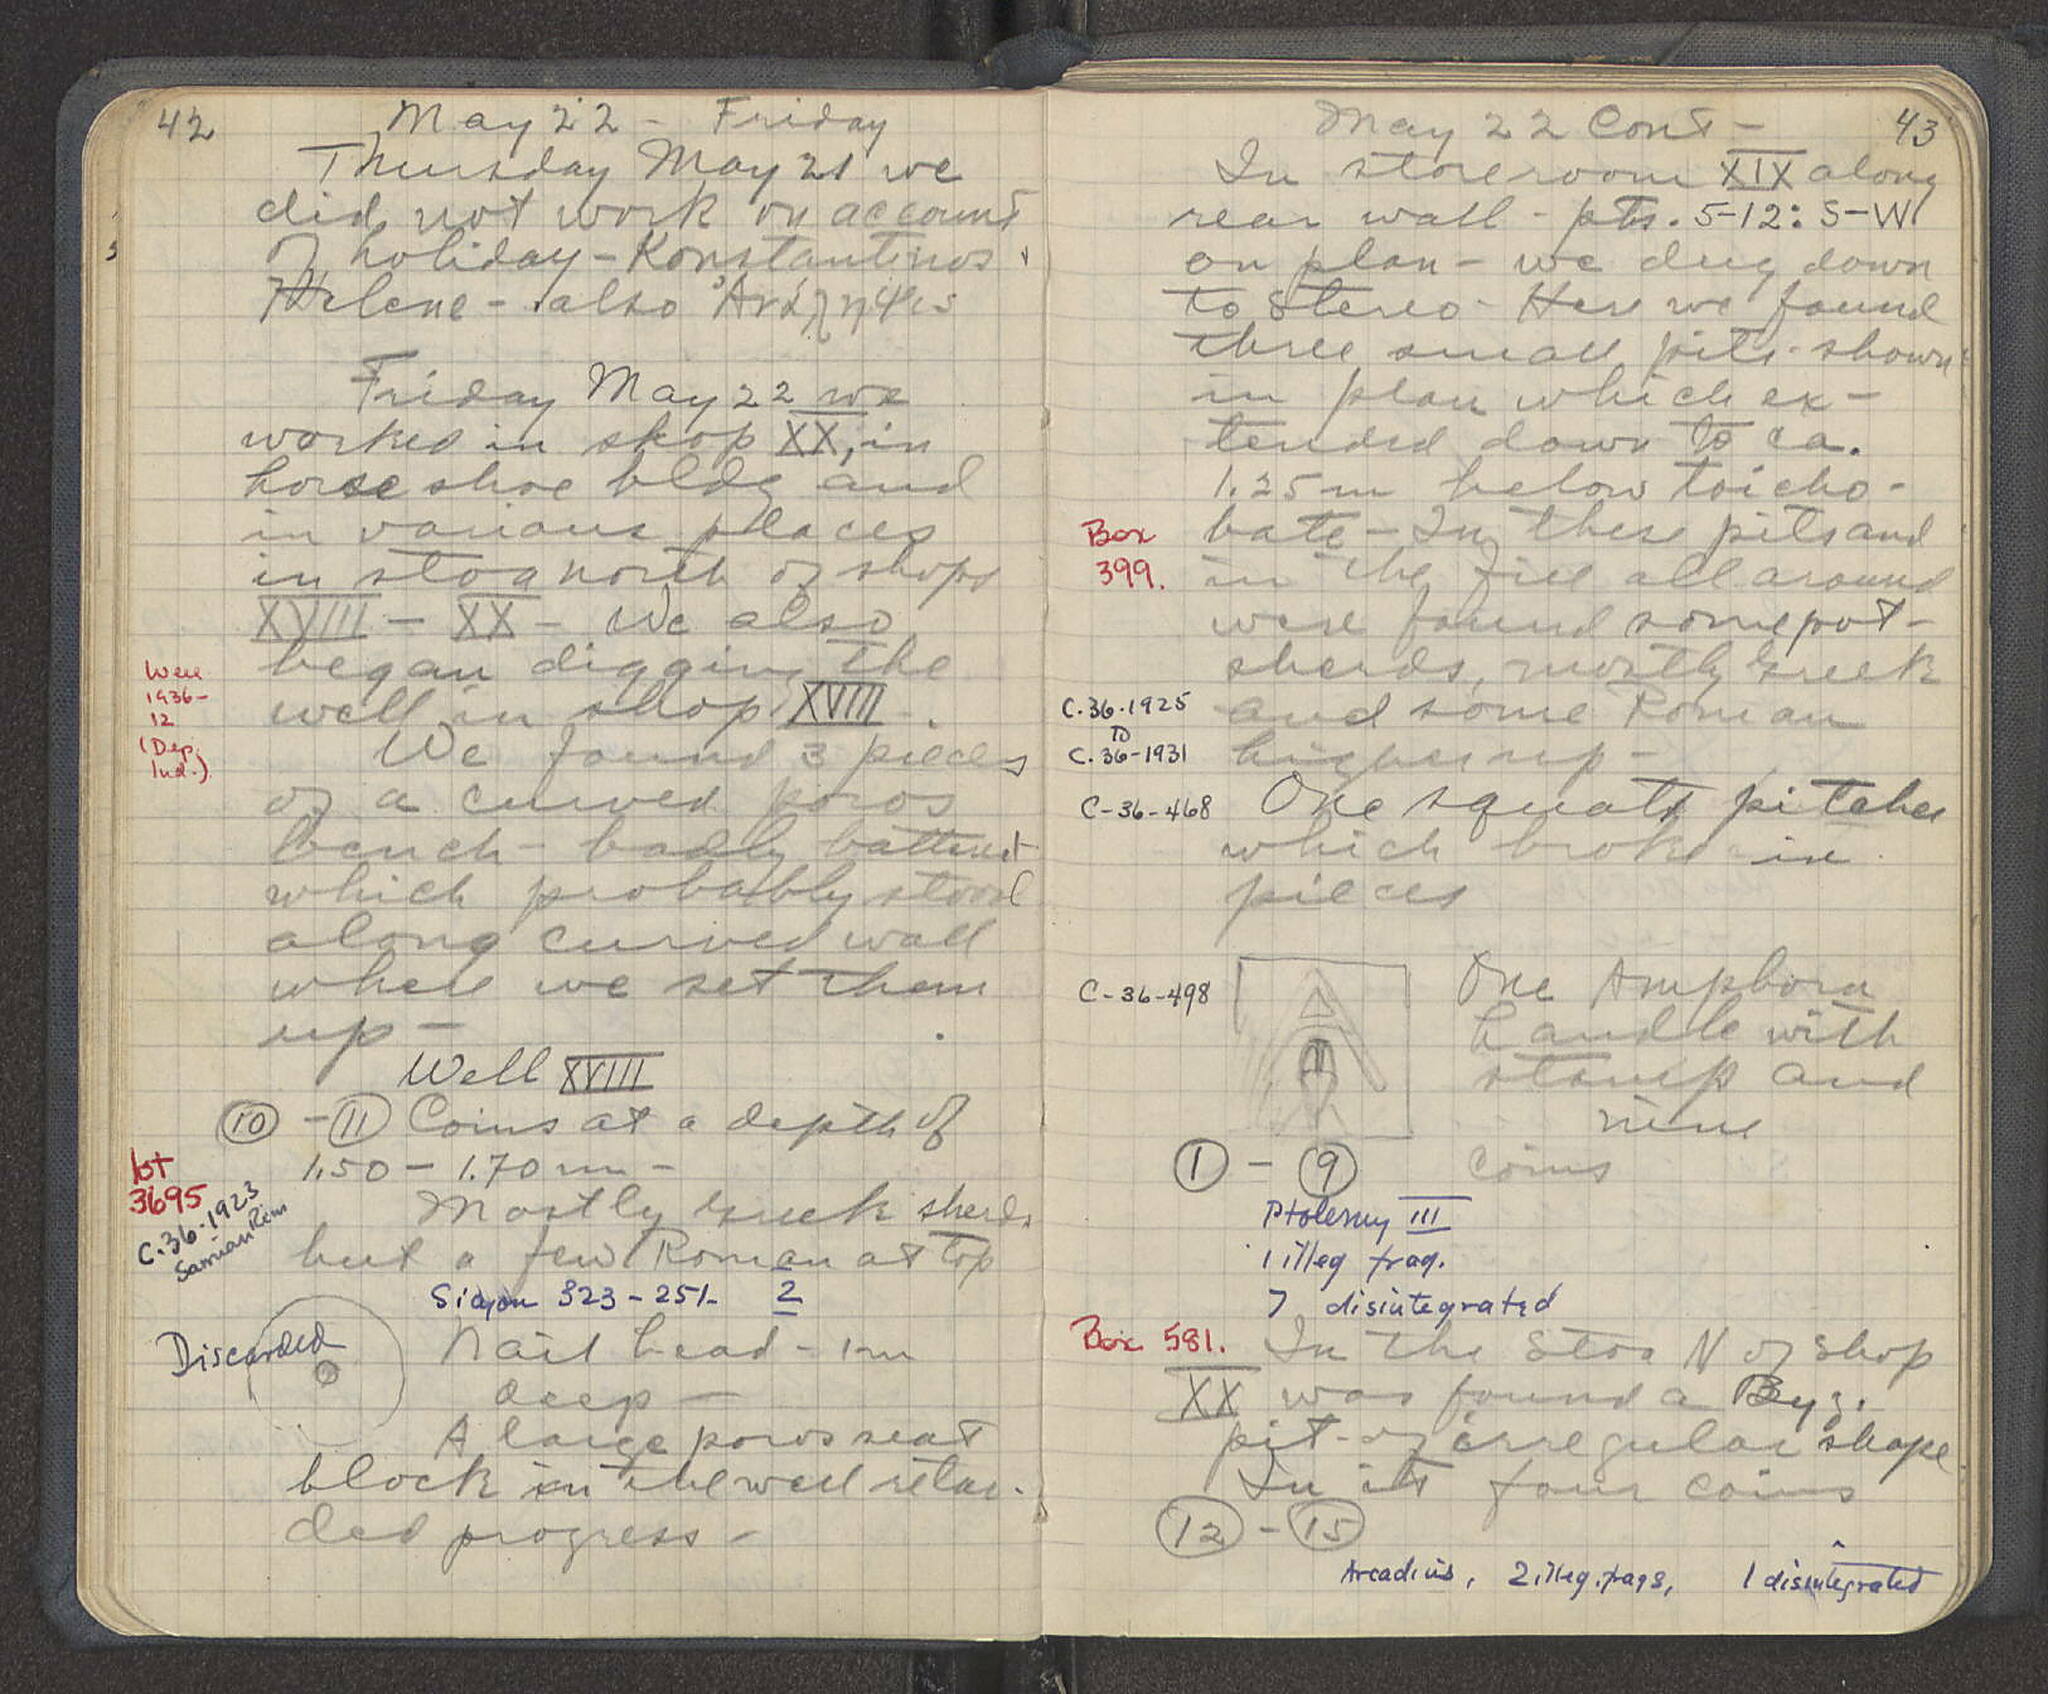 42
May 22 - Friday
Thursday May 21 we
did not work on account
of holiday - Konstantinos +
Helene - also Ἀνάληψις
Friday May 22 we
worked in shop XX, in
horse shoe bldg and
in various places
in stoa north of shops
XVIII - XX - We also
began digging the
well in shop XVIII.
Well
1936-
12
(Dep.
Ind.)
We found 3 pieces
of a curved poros
bench - badly battered
which probably stood
along curved wall
where we set them
up -
Well XVIII
10 - 11 Coins at a depth of
1.50 - 1.70 m -
lot
3695
C.36-1923
Samian Rim
Mostly Greek sherds
but a few Roman at top
Sicyon 323-251- 2
Discarded
Nail head - 1m
deep -
A large poros seat
block in the well retar-
ded progress -
43
May 22 Cont -
In storeroom XIX along
rear wall - pts. 5-12: S-W
on plan - we dug down
to stereo - Here we found
three small pits - shown
in plan which ex-
tended down to ca.
1.25 m below toicho-
bate - In these pits and
Box
399.
in the fill all around
were found some pot-
sherds, mostly Greek
and some Roman
higher up -
C.36-1925
to
C.36-1931
C-36-468 One squat pitcher
which broke in
pieces
C-36-498
One Amphora
handle with
stamp and
nine
1 - 9 coins
Ptolemy III
1 illeg frag.
7 disintegrated
Box 581. In the Stoa N of shop
XX was found a Byz.
pit - of irregular shape
In it four coins
12 - 15
Arcadius, 2 illeg. frags, 1 disintegrated